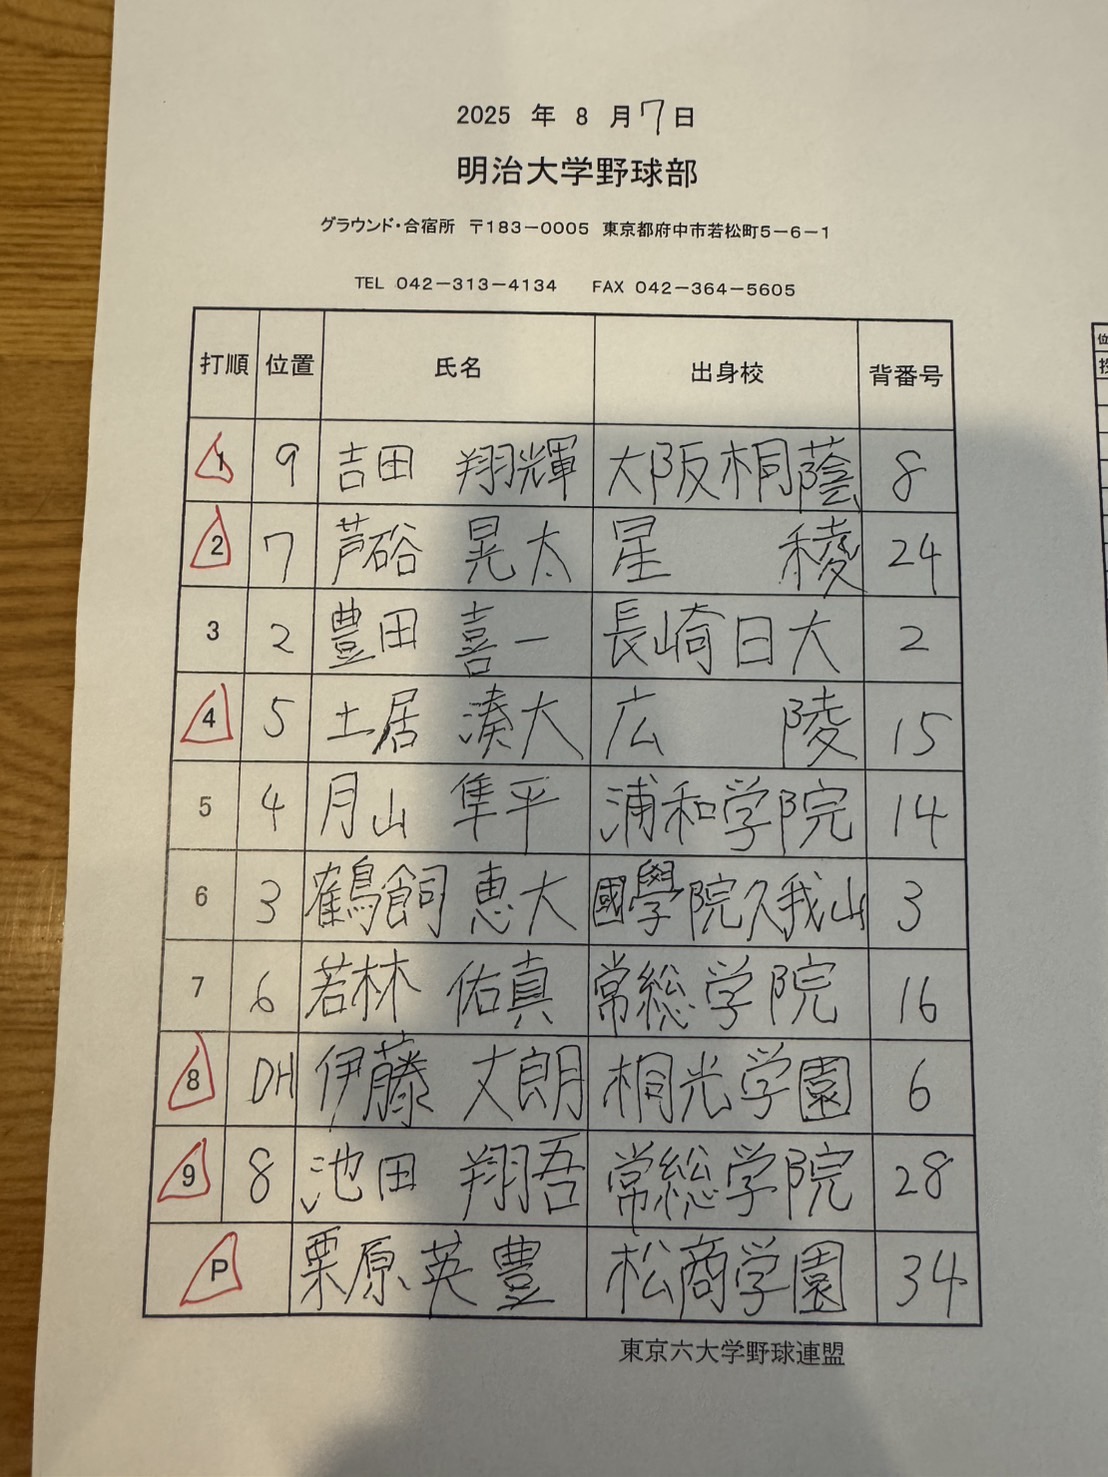 2025 年 8 月7日
明治大学野球部
グラウンド・合宿所 〒183－0005 東京都府中市若松町5－6－1
TEL 042－313－4134 FAX 042－364－5605
打順 位置 氏名 出身校 背番号
1 9 吉田 翔輝 大阪桐蔭 8
2 7 芦硲 晃太 星 稜 24
3 2 豊田 喜一 長崎日大 2
4 5 土居 湊大 広 陵 15
5 4 月山 隼平 浦和学院 14
6 3 鶴飼 恵大 國學院久我山 3
7 6 若林 佑真 常総学院 16
8 DH 伊藤 丈朗 桐光学園 6
9 8 池田 翔吾 常総学院 28
P 栗原 英豊 松商学園 34
東京六大学野球連盟